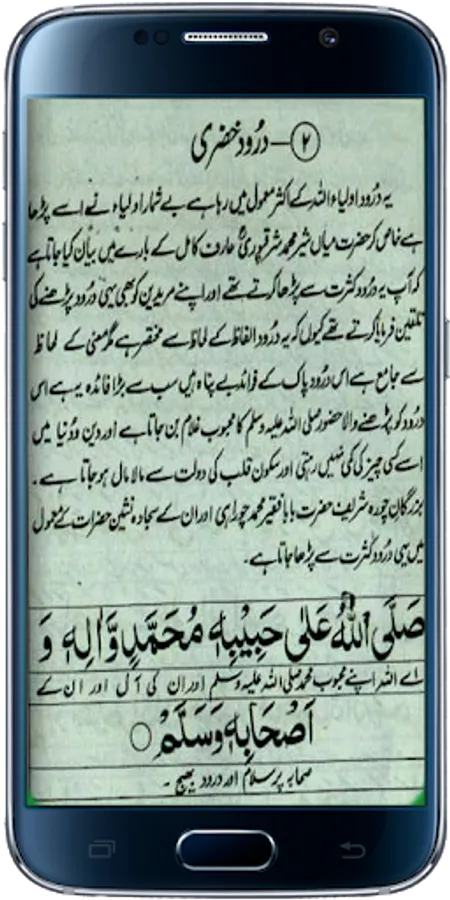 ۲ — درُود خضری
یہ درُود اولیاء اللہ کے اکثر معمول میں رہا ہے بے شمار اولیاء نے اسے پڑھا
ہے خاص کر حضرت میاں شیر محمد شرقپوریؒ عارف کامل کے بارے میں بیان کیا جاتا ہے
کہ آپ یہ درُود کثرت سے پڑھا کرتے تھے اور اپنے مریدین کو بھی یہی درود پڑھنے کی
تلقین فرمایا کرتے تھے کیوں کہ یہ درُود الفاظ کے لحاظ سے مختصر ہے مگر معنی کے لحاظ
سے جامع ہے اس درُود پاک کے فوائد بے پناہ ہیں سب سے بڑا فائدہ یہ ہے اس
درُود کو پڑھنے والا حضور صلی اللہ علیہ وسلم کا محبوب غلام بن جاتا ہے اور دین و دُنیا میں
اسے کسی چیز کی کمی نہیں رہتی اور سکون قلب کی دولت سے مالا مال ہو جاتا ہے۔
بزرگان چورہ شریف حضرت بابا فقیر محمد چوراہی اور ان کے سجادہ نشین حضرات کے معمول
میں یہی درُود کثرت سے پڑھا جاتا ہے۔
صَلَّی اللّٰهُ عَلٰی حَبِیْبِهٖ مُحَمَّدٍ وَّاٰلِهٖ وَ
اے اللہ اپنے محبوب محمد صلی اللہ علیہ وسلم اور ان کی آل اور ان کے
اَصْحَابِهٖ وَسَلَّمْ ○
صحابہ پر سلام اور درود بھیج ۔